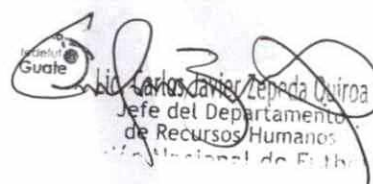 fedefut
Guate
Lic. Carlos Javier Zepeda Quiroa
Jefe del Departamento
de Recursos Humanos
Nacional de